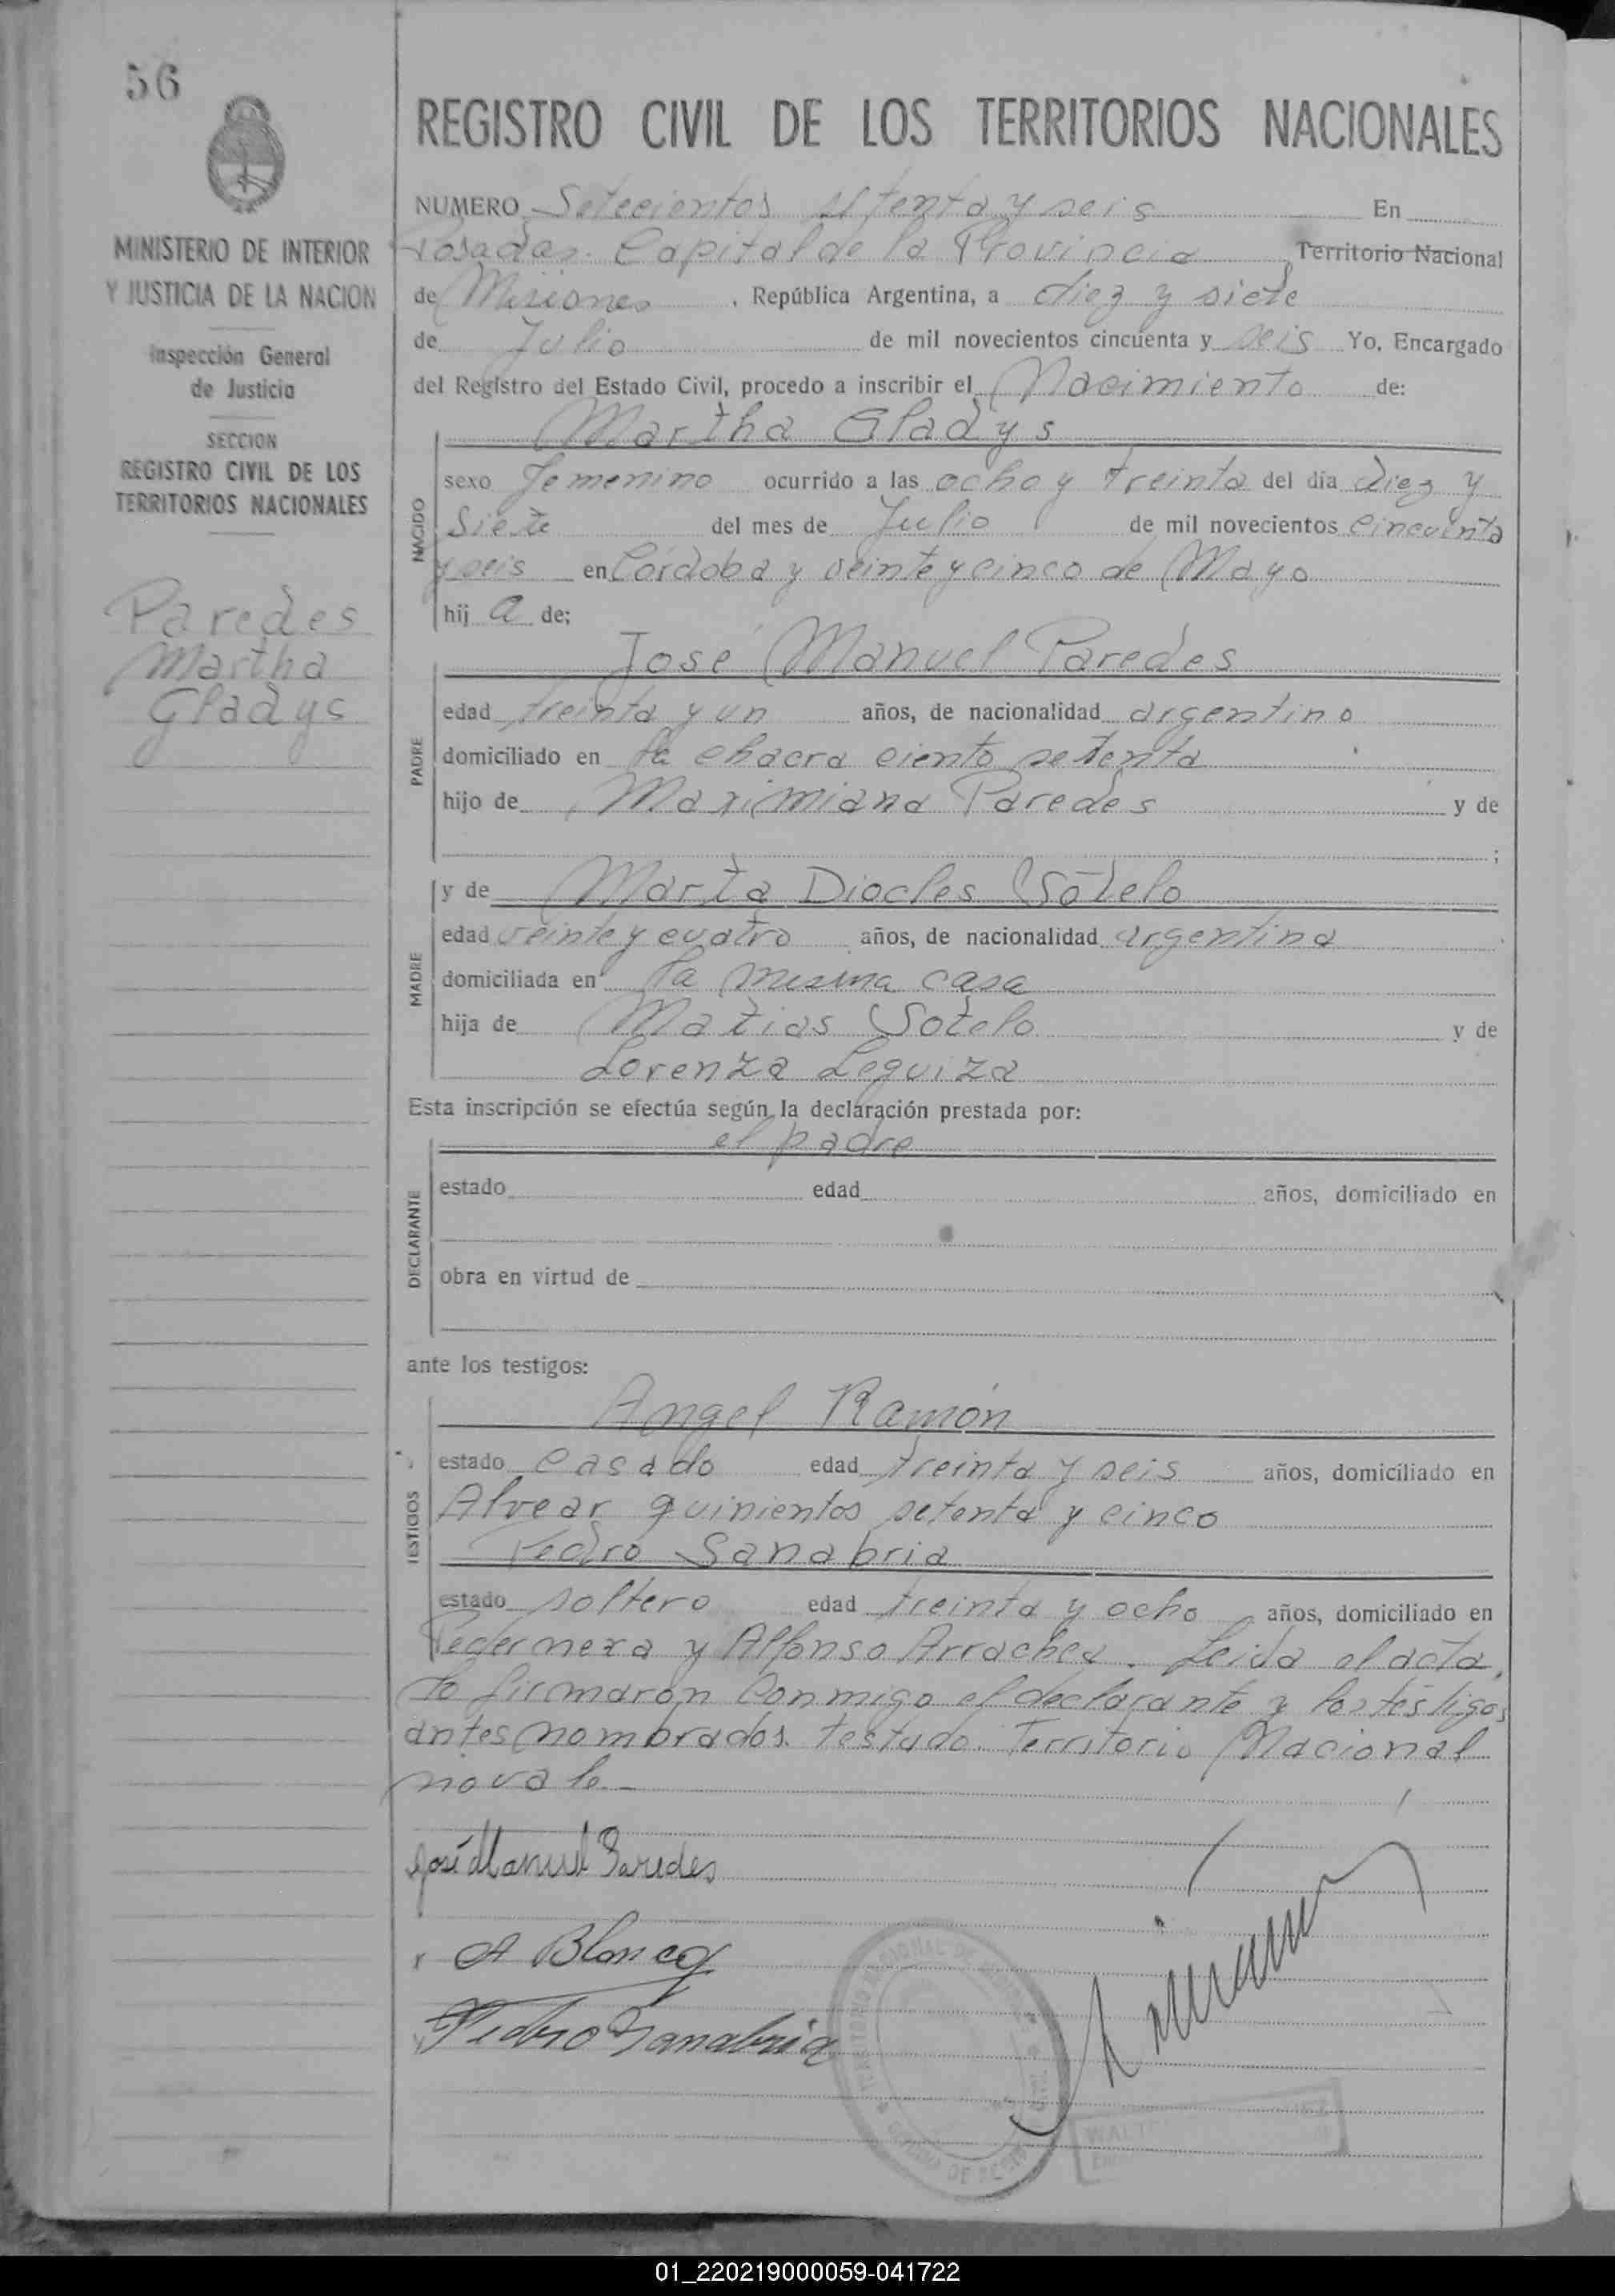 56
REGISTRO CIVIL DE LOS TERRITORIOS NACIONALES
MINISTERIO DE INTERIOR
Y JUSTICIA DE LA NACION
Inspección General
de Justicia
SECCION
REGISTRO CIVIL DE LOS
TERRITORIOS NACIONALES
Paredes
Martha
Gladys
NUMERO Setecientos setenta y seis En
Posadas. Capital de la Provincia Territorio Nacional
de Misiones, República Argentina, a diez y siete
de Julio de mil novecientos cincuenta y seis Yo, Encargado
del Registro del Estado Civil, procedo a inscribir el Nacimiento de:
Martha Gladys
NACIDO
sexo femenino ocurrido a las ocho y treinta del día diez y
siete del mes de Julio de mil novecientos cincuenta
y seis en Córdoba y veinte y cinco de Mayo
hij a de;
José Manuel Paredes
PADRE
edad treinta y un años, de nacionalidad argentino
domiciliado en la chacra ciento setenta
hijo de Maximiana Paredes y de
;
y de Marta Diocles Sotelo
MADRE
edad veinte y cuatro años, de nacionalidad argentina
domiciliada en la misma casa
hija de Matias Sotelo y de
Lorenza Leguiza
Esta inscripción se efectúa según la declaración prestada por:
el padre
DECLARANTE
estado edad años, domiciliado en
obra en virtud de
ante los testigos:
Angel Ramón
TESTIGOS
estado casado edad treinta y seis años, domiciliado en
Alvear quinientos setenta y cinco
Pedro Sanabria
estado soltero edad treinta y ocho años, domiciliado en
Pedernera y Alfonso Arrachea. Leida el acta,
la firmaron conmigo el declarante y los testigos
antes nombrados. testado: Territorio Nacional
no vale.-
José Manuel Paredes
A Blanco
Pedro Sanabria
01_220219000059-041722